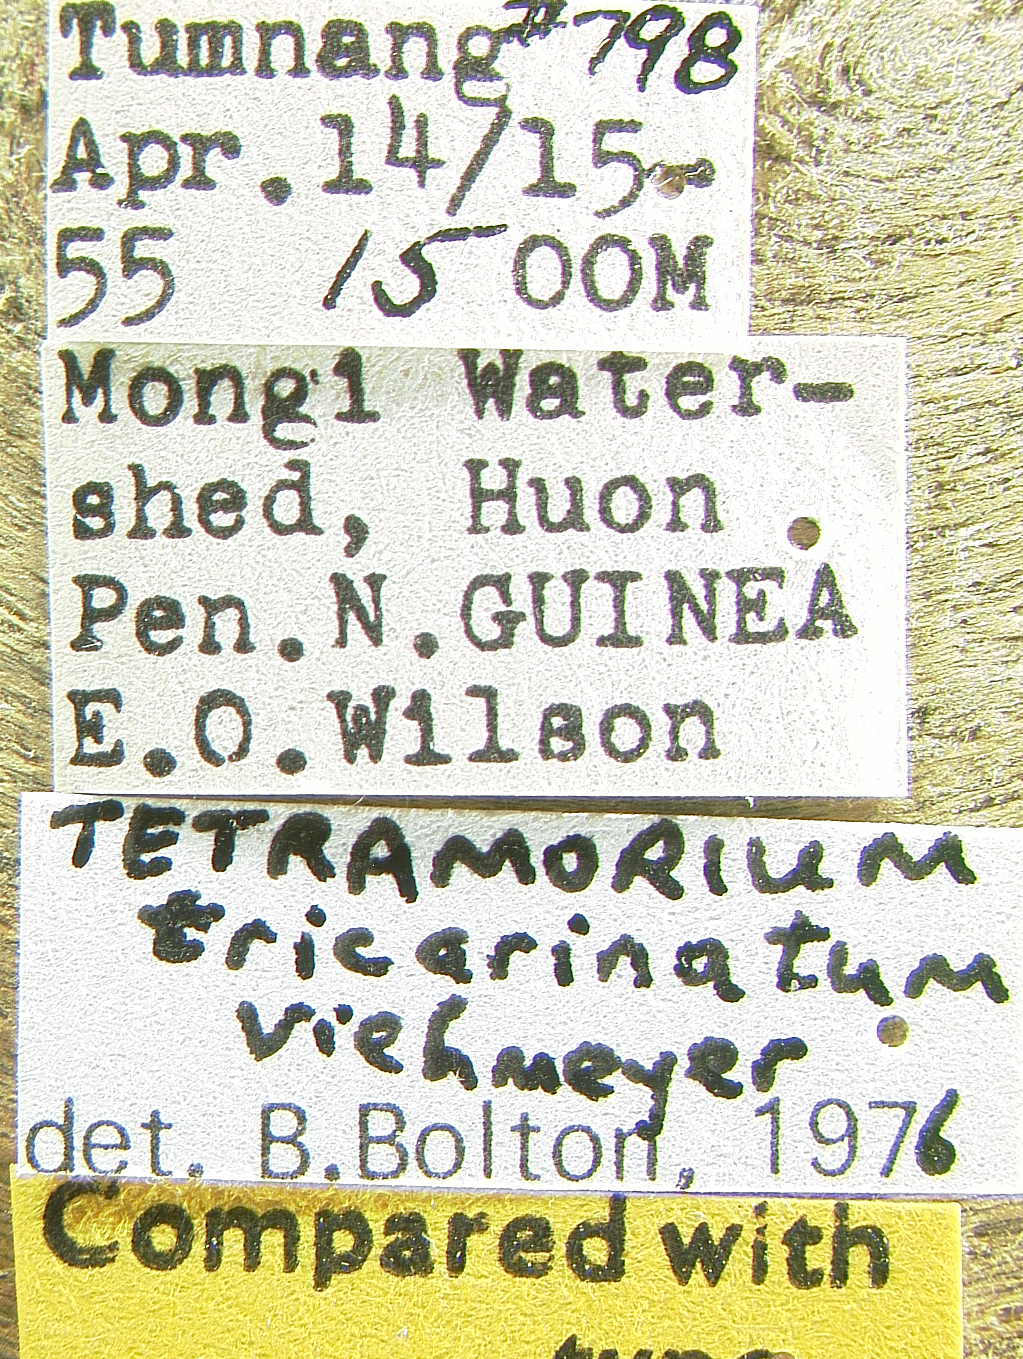 Tumnang #798
Apr.14/15-
55 1500M
Mongi Water-
shed, Huon
Pen.N.GUINEA
E.O.Wilson
TETRAMORIUM
tricarinatum
viehmeyer
det. B.Bolton, 1976
Compared with
type